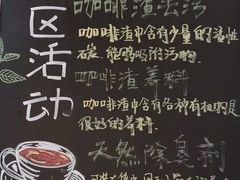 区活动
咖啡渣去污
咖啡渣中含有少量的活性
碳，能够吸附污的
咖啡渣养料
咖啡渣中含有各种有机的是
很好的养料.
天然除臭剂